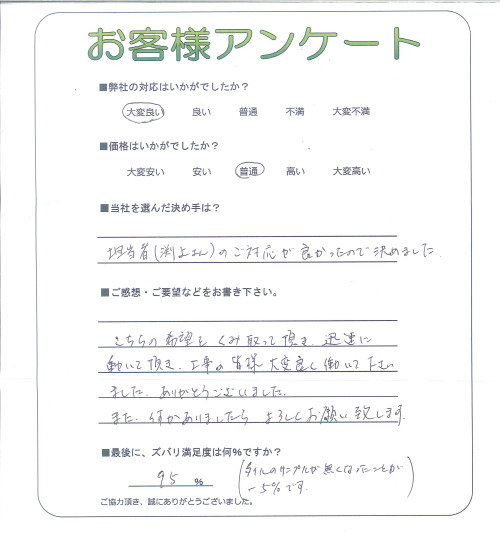 お客様アンケート
■弊社の対応はいかがでしたか？
大変良い 良い 普通 不満 大変不満
■価格はいかがでしたか？
大変安い 安い 普通 高い 大変高い
■当社を選んだ決め手は？
担当者(渕上さん)のご対応が良かったので決めました
■ご感想・ご要望などをお書き下さい。
こちらの希望をくみ取って頂き、迅速に
動いて頂き、工事の皆様大変良く働いて下さい
ました。ありがとうございました。
また、何かありましたらよろしくお願い致します。
■最後に、ズバリ満足度は何%ですか？
95 % (タイルのサンプルが無くなったことが
－5%です。)
ご協力頂き、誠にありがとうございました。